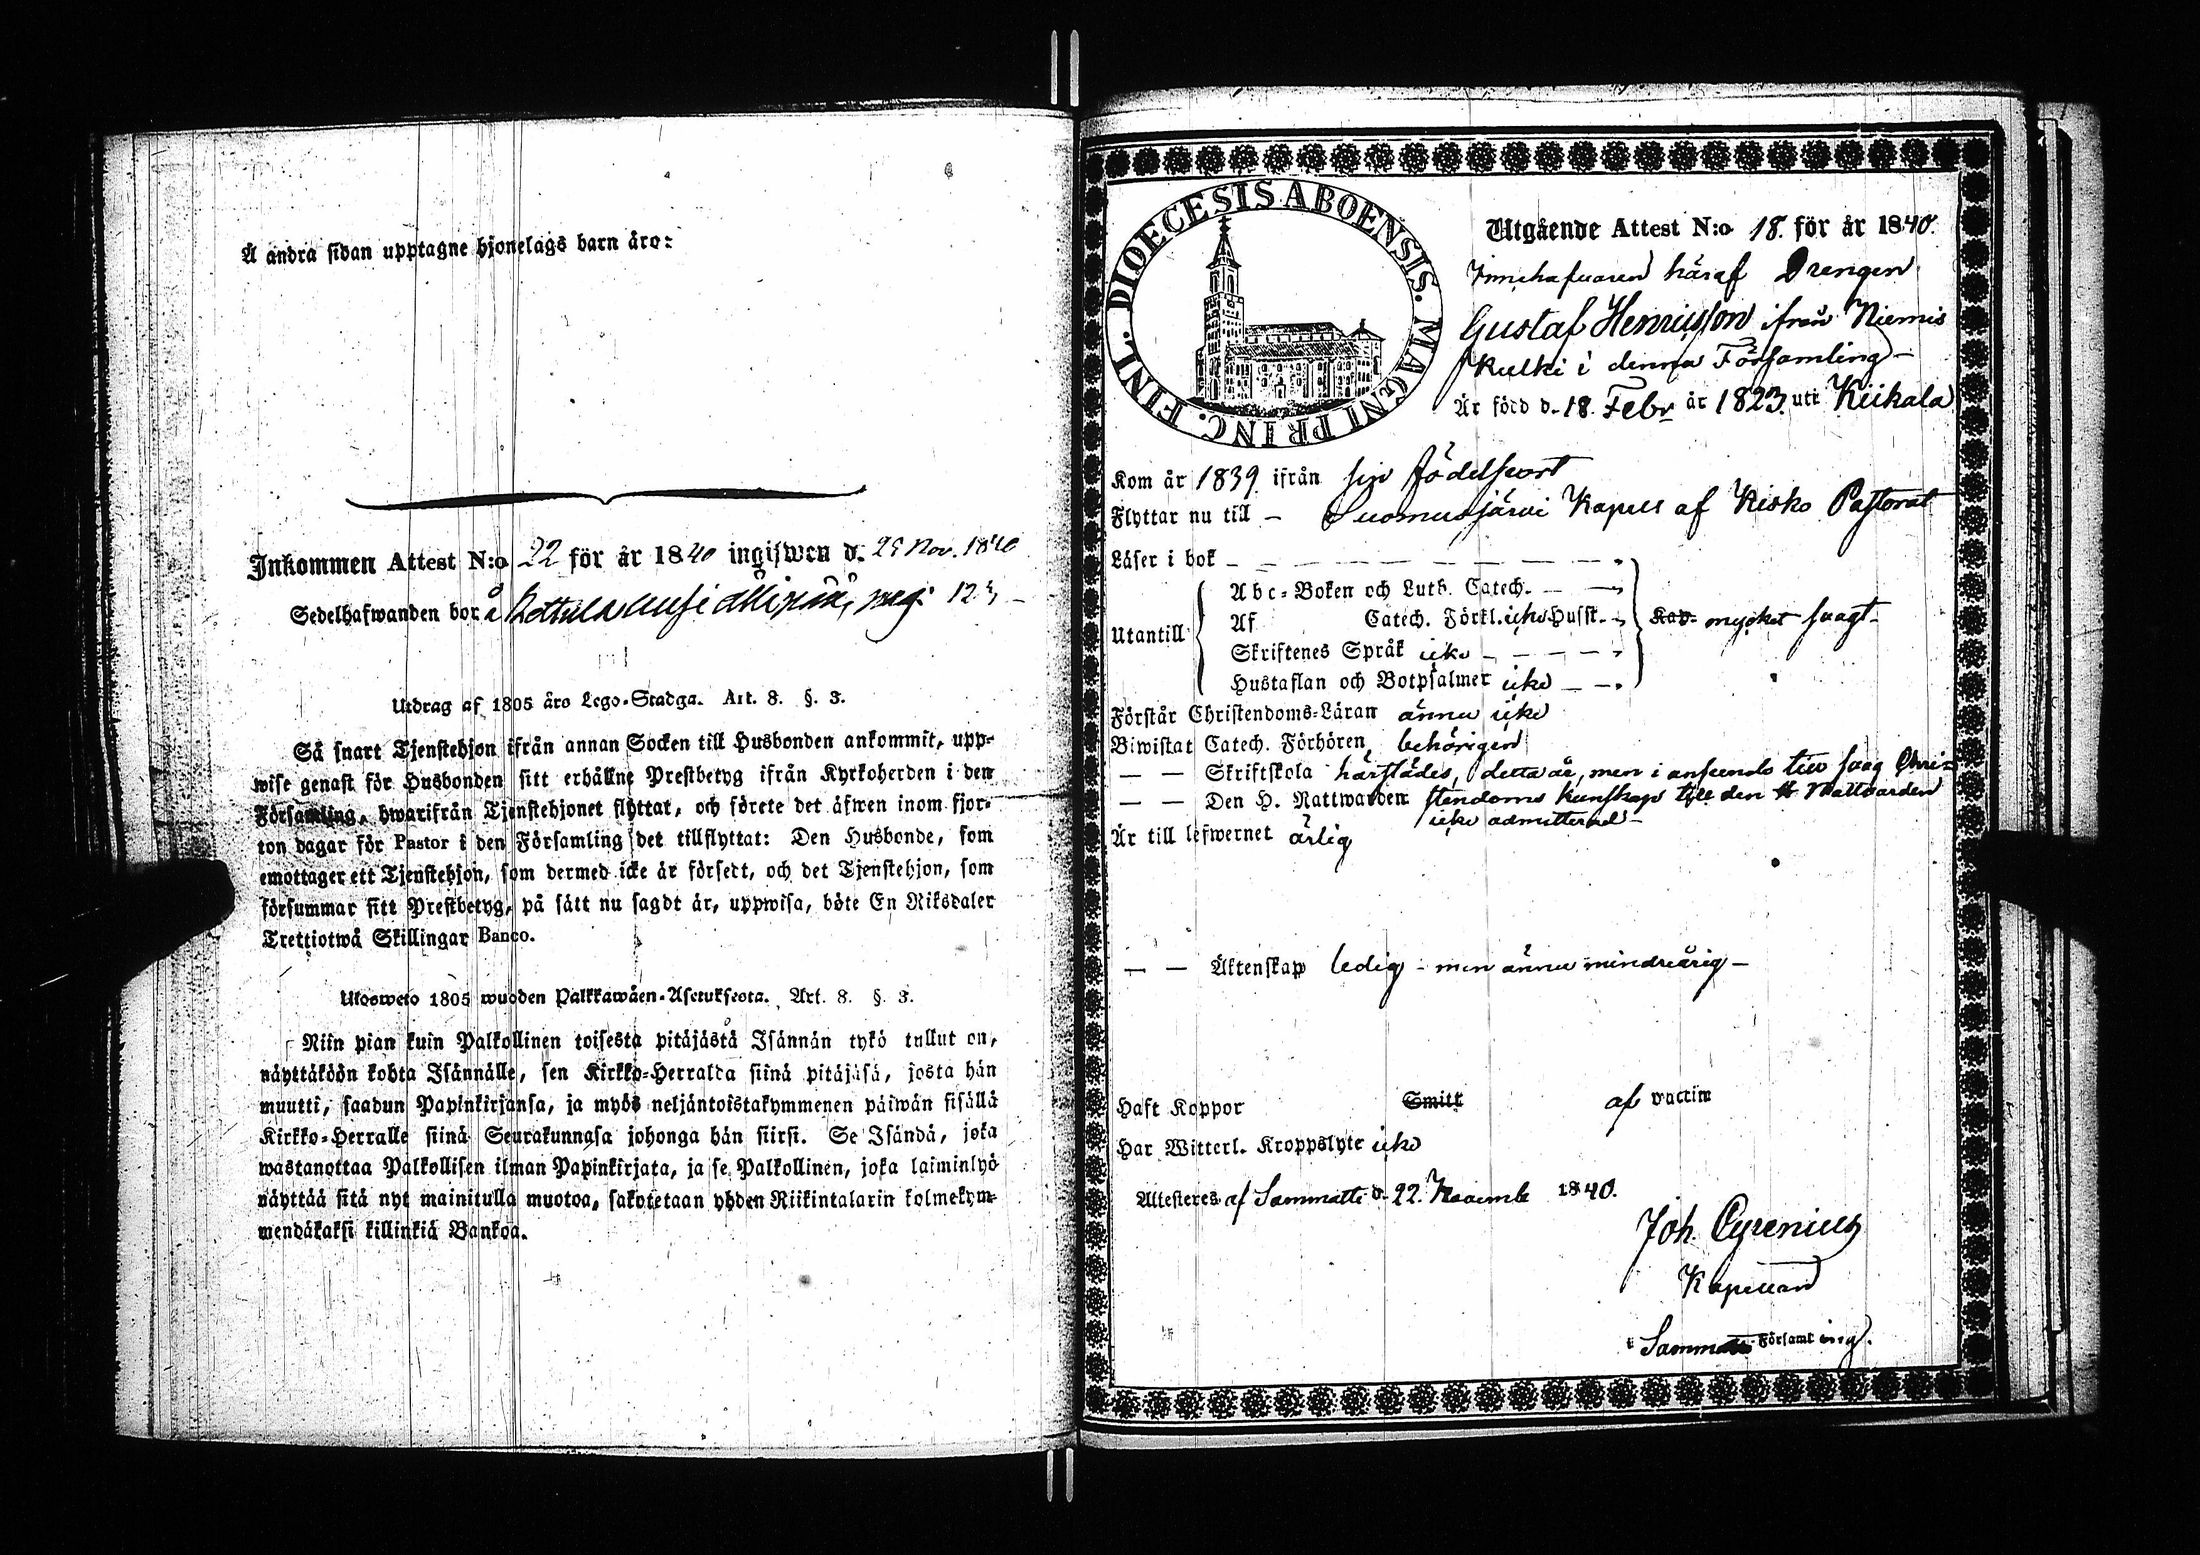 Å andra sidan upptagne hjonelags barn äro:
Inkommen Attest N:o 22 för år 1840 ingifwen d. 25 Nov. 1840
Sedelhafwanden bor å
Utdrag af 1805 års Lego-Stadga. Art. 8. §. 3.
Så snart Tjenstehjon ifrån annan Socken till Husbonden ankommit, upp-
wise genast för Husbonden sitt erhållne Prestbetyg ifrån Kyrkoherden i den
Församling, hwarifrån Tjenstehjonet flyttat, och förete det äfwen inom fjor-
ton dagar för Pastor i den Församling det tillflyttat: Den Husbonde, som
emottager ett Tjenstehjon, som dermed icke är försedt, och det Tjenstehjon, som
försummar sitt Prestbetyg, på sätt nu sagdt är, uppwisa, böte En Riksdaler
Trettiotwå Skillingar Banco.
Ulosweto 1805 wuoden Palkkawäen-Asetuksesta. Art. 8. §. 3.
Niin pian kuin Palkollinen toisesta pitäjästä Isännän tykö tullut on,
näyttäköön kohta Isännälle, sen Kirkko-Herralda siinä pitäjäsä, josta hän
muutti, saadun Papinkirjansa, ja myös neljäntoistakymmenen päiwän sisällä
Kirkko-Herralle siinä Seurakunnasa johonga hän siirsi. Se Isändä, joka
wastanottaa Palkollisen ilman Papinkirjata, ja se Palkollinen, joka laiminlyö
näyttää sitä nyt mainitulla muotoa, sakotetaan yhden Riikintalarin kolmekym-
mendäkaksi killinkiä Bankoa.
DIOECESIS ABOENSIS. MAGNI PRINC. FINL.
Utgående Attest N:o 18. för år 1840.
Innehafvaren häraf Drengen
Gustaf Henricsson ifrån Niemis
Kulki i denna Församling
Är född d. 18. Febr år 1823. uti Kiikala
Kom år 1839 ifrån sin födelseort
Flyttar nu till – Suomusjärvi Kapell af Kisko Pastorat
Läser i bok
Abc-Boken och Luth. Catech.
Utantill Af Catech. Förkl. icke Husst. Kap. mycket svagt
Skriftenes Språk icke
Hustaflan och Botpsalmer icke
Förstår Christendoms-Läran ännu icke
Biwistat Catech. Förhören behörigen
— — Skriftskola härstädes, detta år, men i anseende till svag Chri-
— — Den H. Nattwarden stendoms kunskap till den H. Nattvarden
icke admitterad
Är till lefwernet ärlig
— — Äktenskap ledig – men ännu mindreårig –
Haft Koppor Smitt af vaccin
Har Witterl. Kroppslyte icke
Attesteres af Sammatti d. 22. Novemb 1840.
Joh. Cyrenius
Kapellan
i Sammatti Församling.